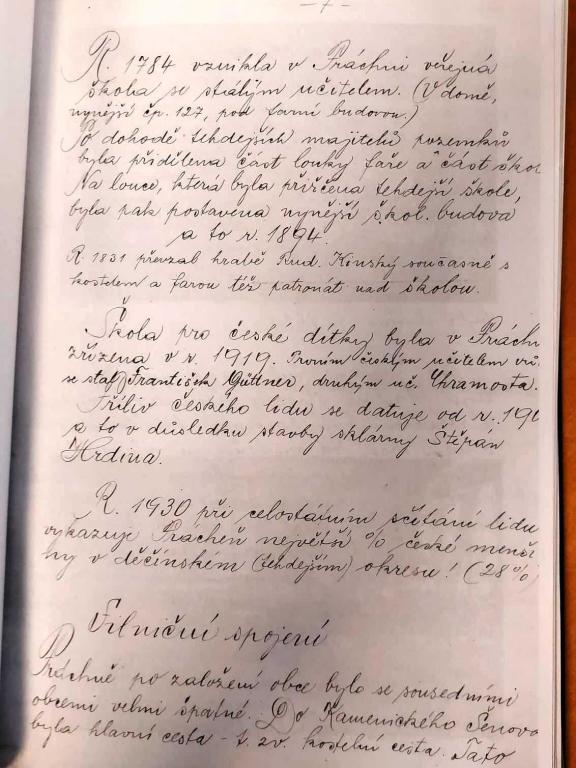 - 7 -
R. 1784 vznikla v Práchni veřejná
škola se stálým učitelem. (V domě,
nynější čp. 127, pod farní budovou.)
Po dohodě tehdejších majitelů pozemků
byla přidělena část louky faře a část škol
Na louce, která byla přiřčena tehdejší škole,
byla pak postavena nynější škol. budova
a to r. 1894.
R. 1831 převzal hrabě Rud. Kinský současně s
kostelem a farou též patronát nad školou.
Škola pro české dítky byla v Prách
zřízena v r. 1919. Prvním českým učitelem
se stal František Güttner, druhým uč. Chramosta.
Příliv českého lidu se datuje od r. 19
a to v důsledku stavby sklárny Štěpan
Hrdina.
R. 1930 při celostátním sčítání lidu
vykazuje Prácheň největší % české menši
ny v děčínském (tehdejším) okresu! (28%)
Silniční spojení
Práchně po založení obce bylo se sousedními
obcemi velmi špatné. Do Kamenického Šenova
byla hlavní cesta - t. zv. kostelní cesta. Tato